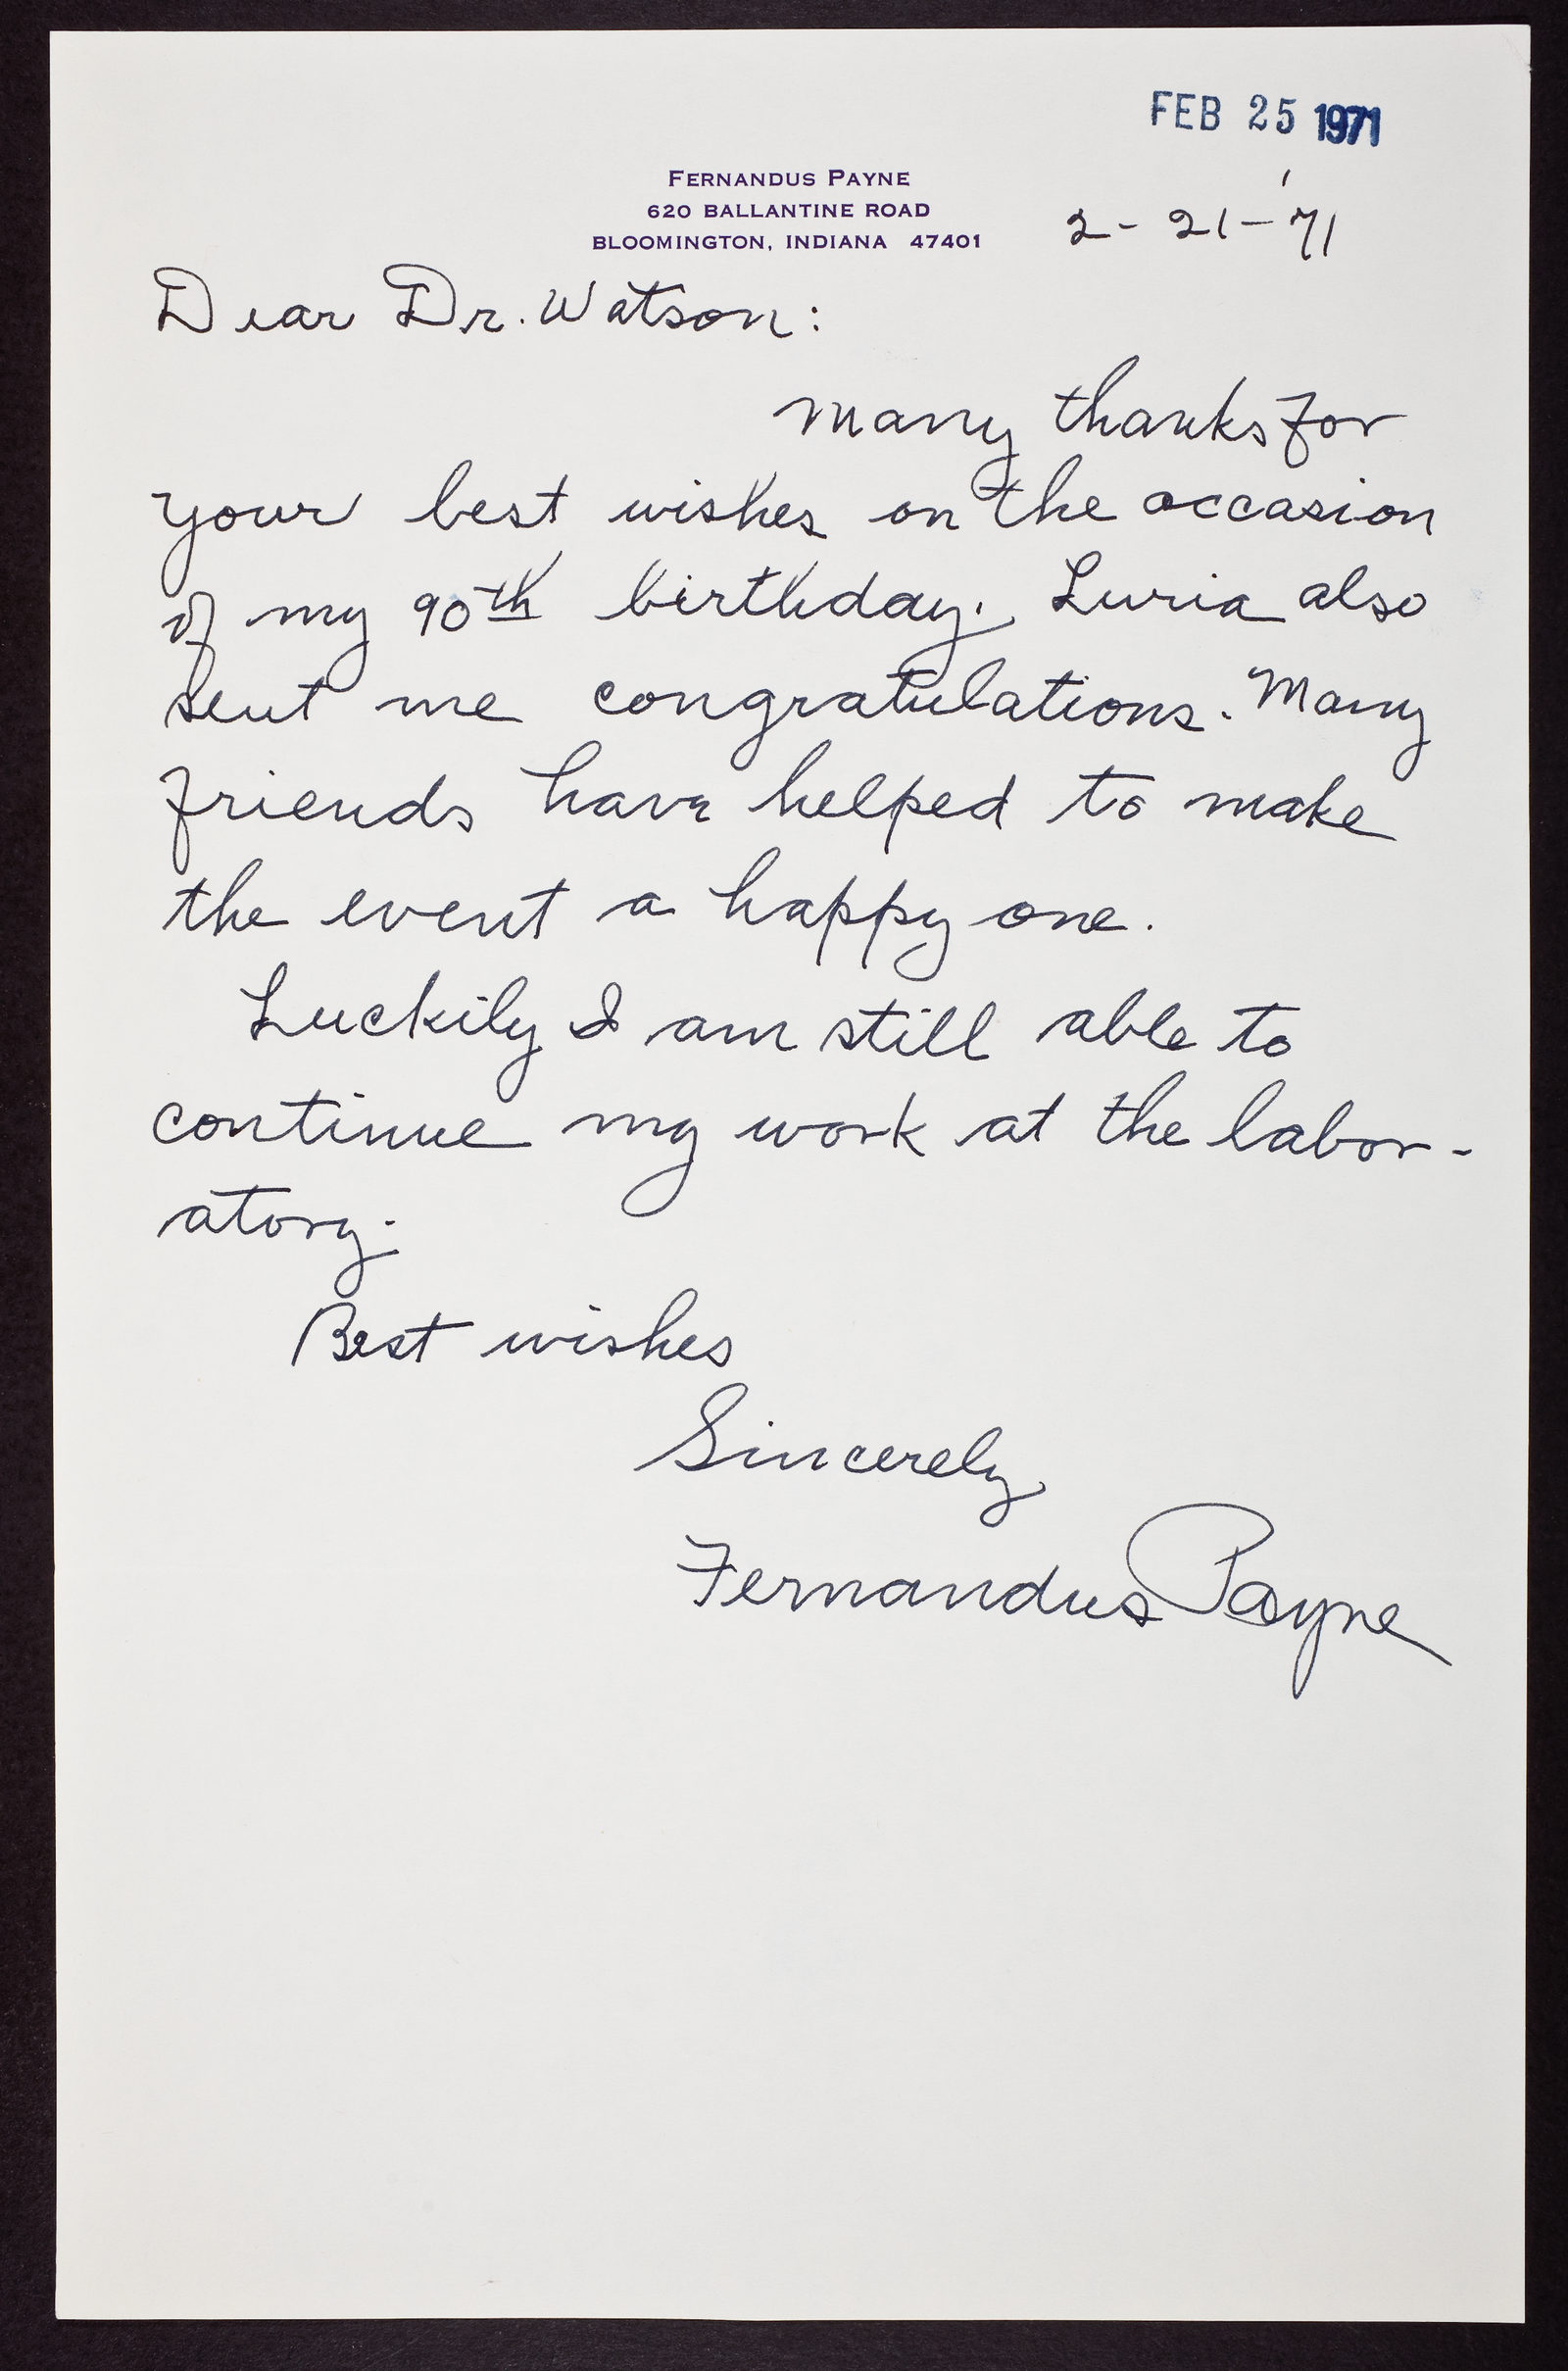 FEB 25 1971
FERNANDUS PAYNE
620 BALLANTINE ROAD
BLOOMINGTON, INDIANA 47401
2-21-'71
Dear Dr. Watson:
Many thanks for
your best wishes on the occasion
of my 90th birthday. Luria also
sent me congratulations. Many
friends have helped to make
the event a happy one.
Luckily I am still able to
continue my work at the labor-
atory.
Best wishes
Sincerely,
Fernandus Payne